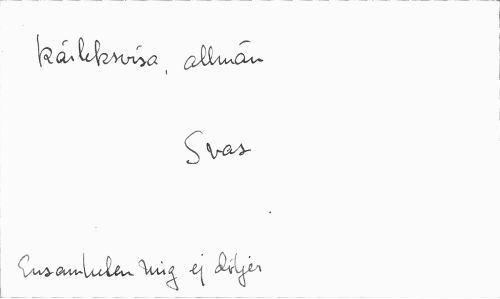 Kärleksvisa, allmän
Svas
Ensamheten mig ej döljer